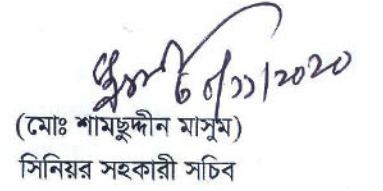 ৩০/১১/২০২০
(মোঃ শামছুদ্দীন মাসুম)
সিনিয়র সহকারী সচিব